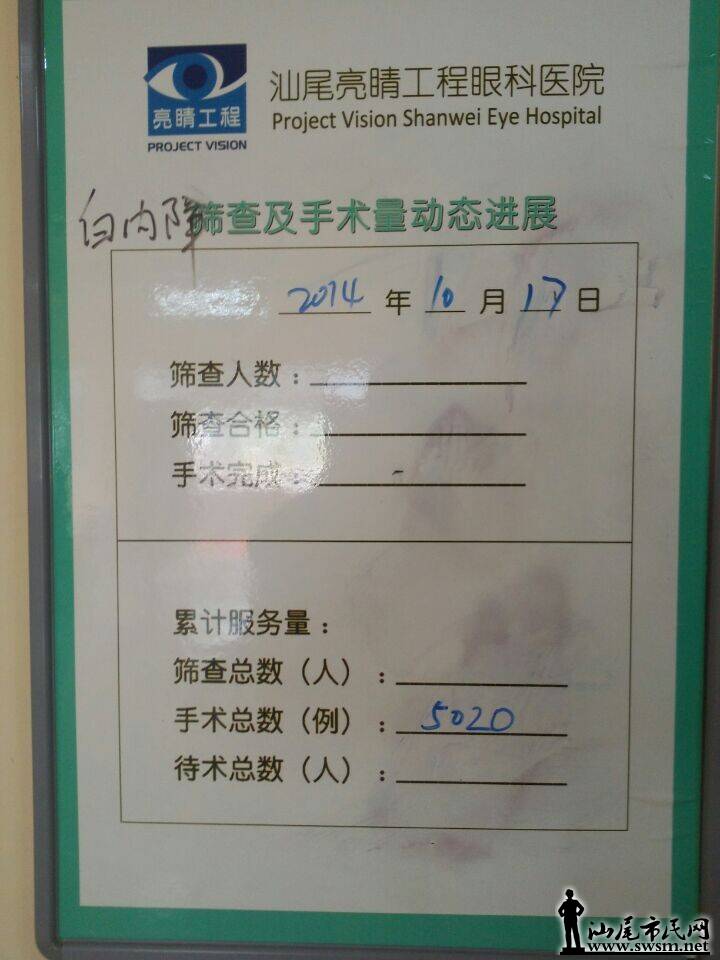 亮睛工程
PROJECT VISION
汕尾亮睛工程眼科医院
Project Vision Shanwei Eye Hospital
白内障筛查及手术量动态进展
2014 年 10 月 17 日
筛查人数：
筛查合格：
手术完成：
累计服务量：
筛查总数（人）：
手术总数（例）：5020
待术总数（人）：
汕尾市民网
www.swsm.net